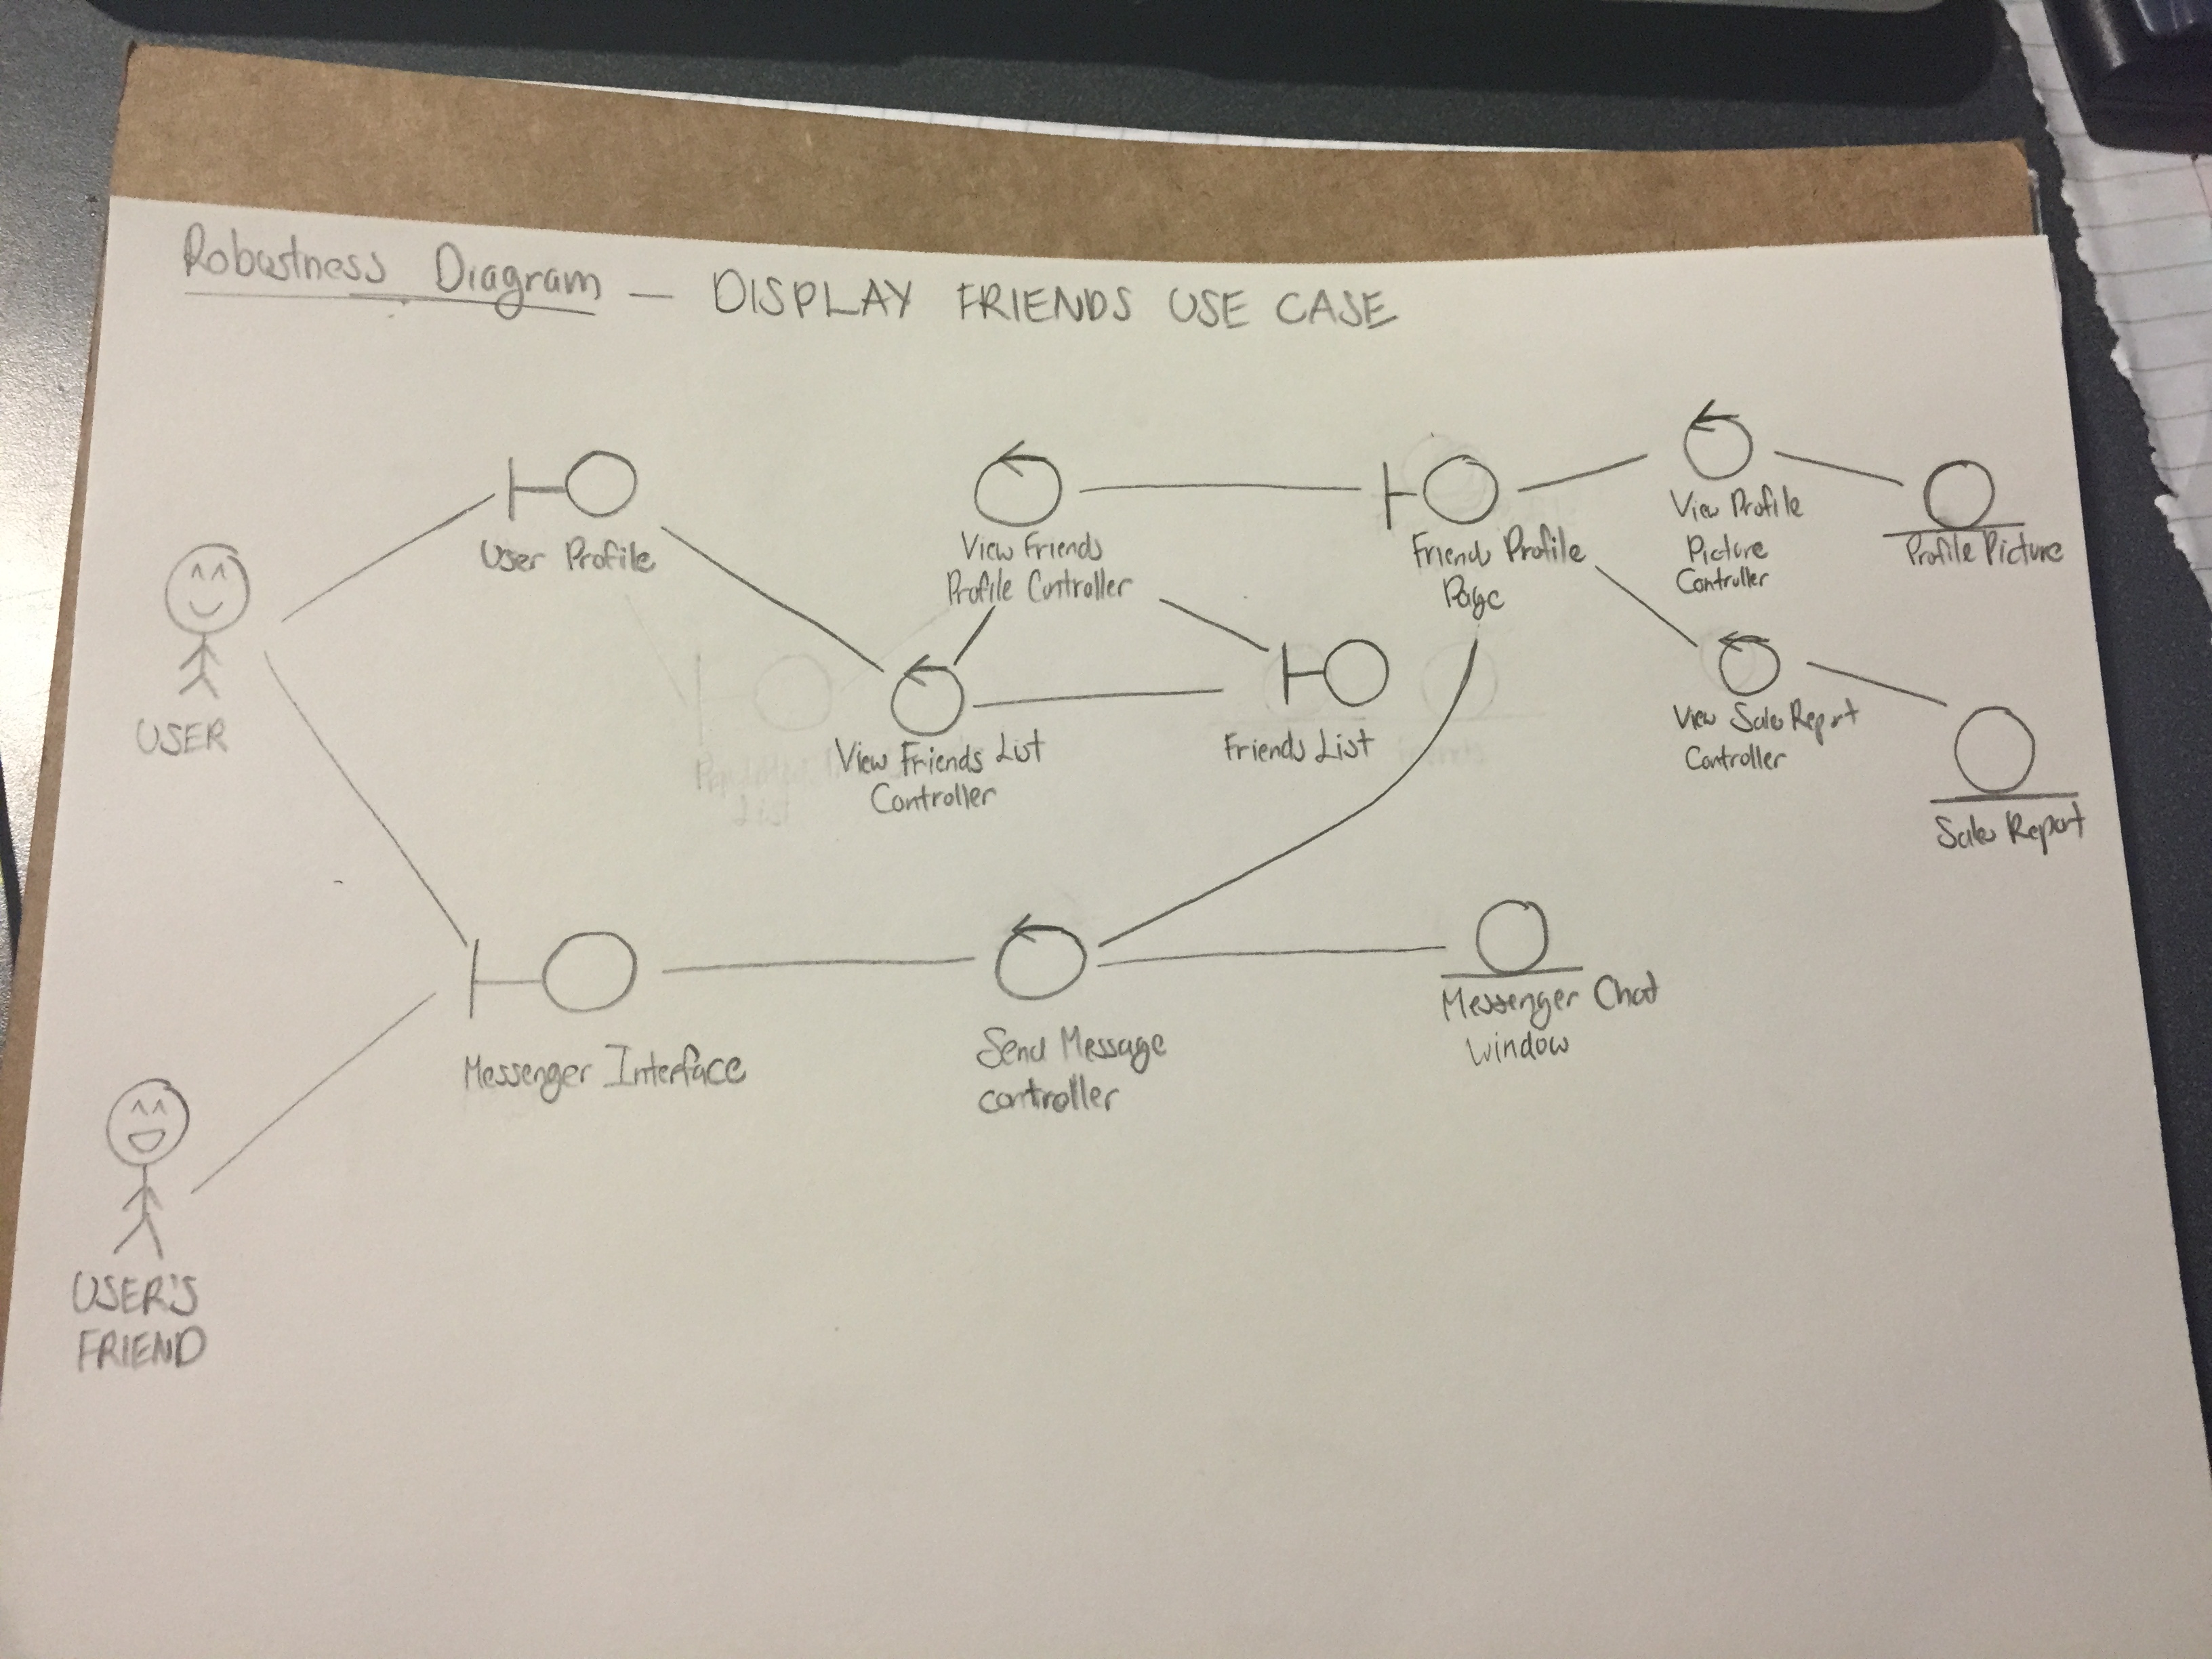 Robustness Diagram — DISPLAY FRIENDS USE CASE
User Profile
View Friends
Profile Controller
Friends Profile
Page
View Profile
Picture
Controller
Profile Picture
USER
View Friends List
Controller
Friends List
View Sales Report
Controller
Sales Report
Messenger Interface
Send Message
controller
Messenger Chat
Window
USER'S
FRIEND